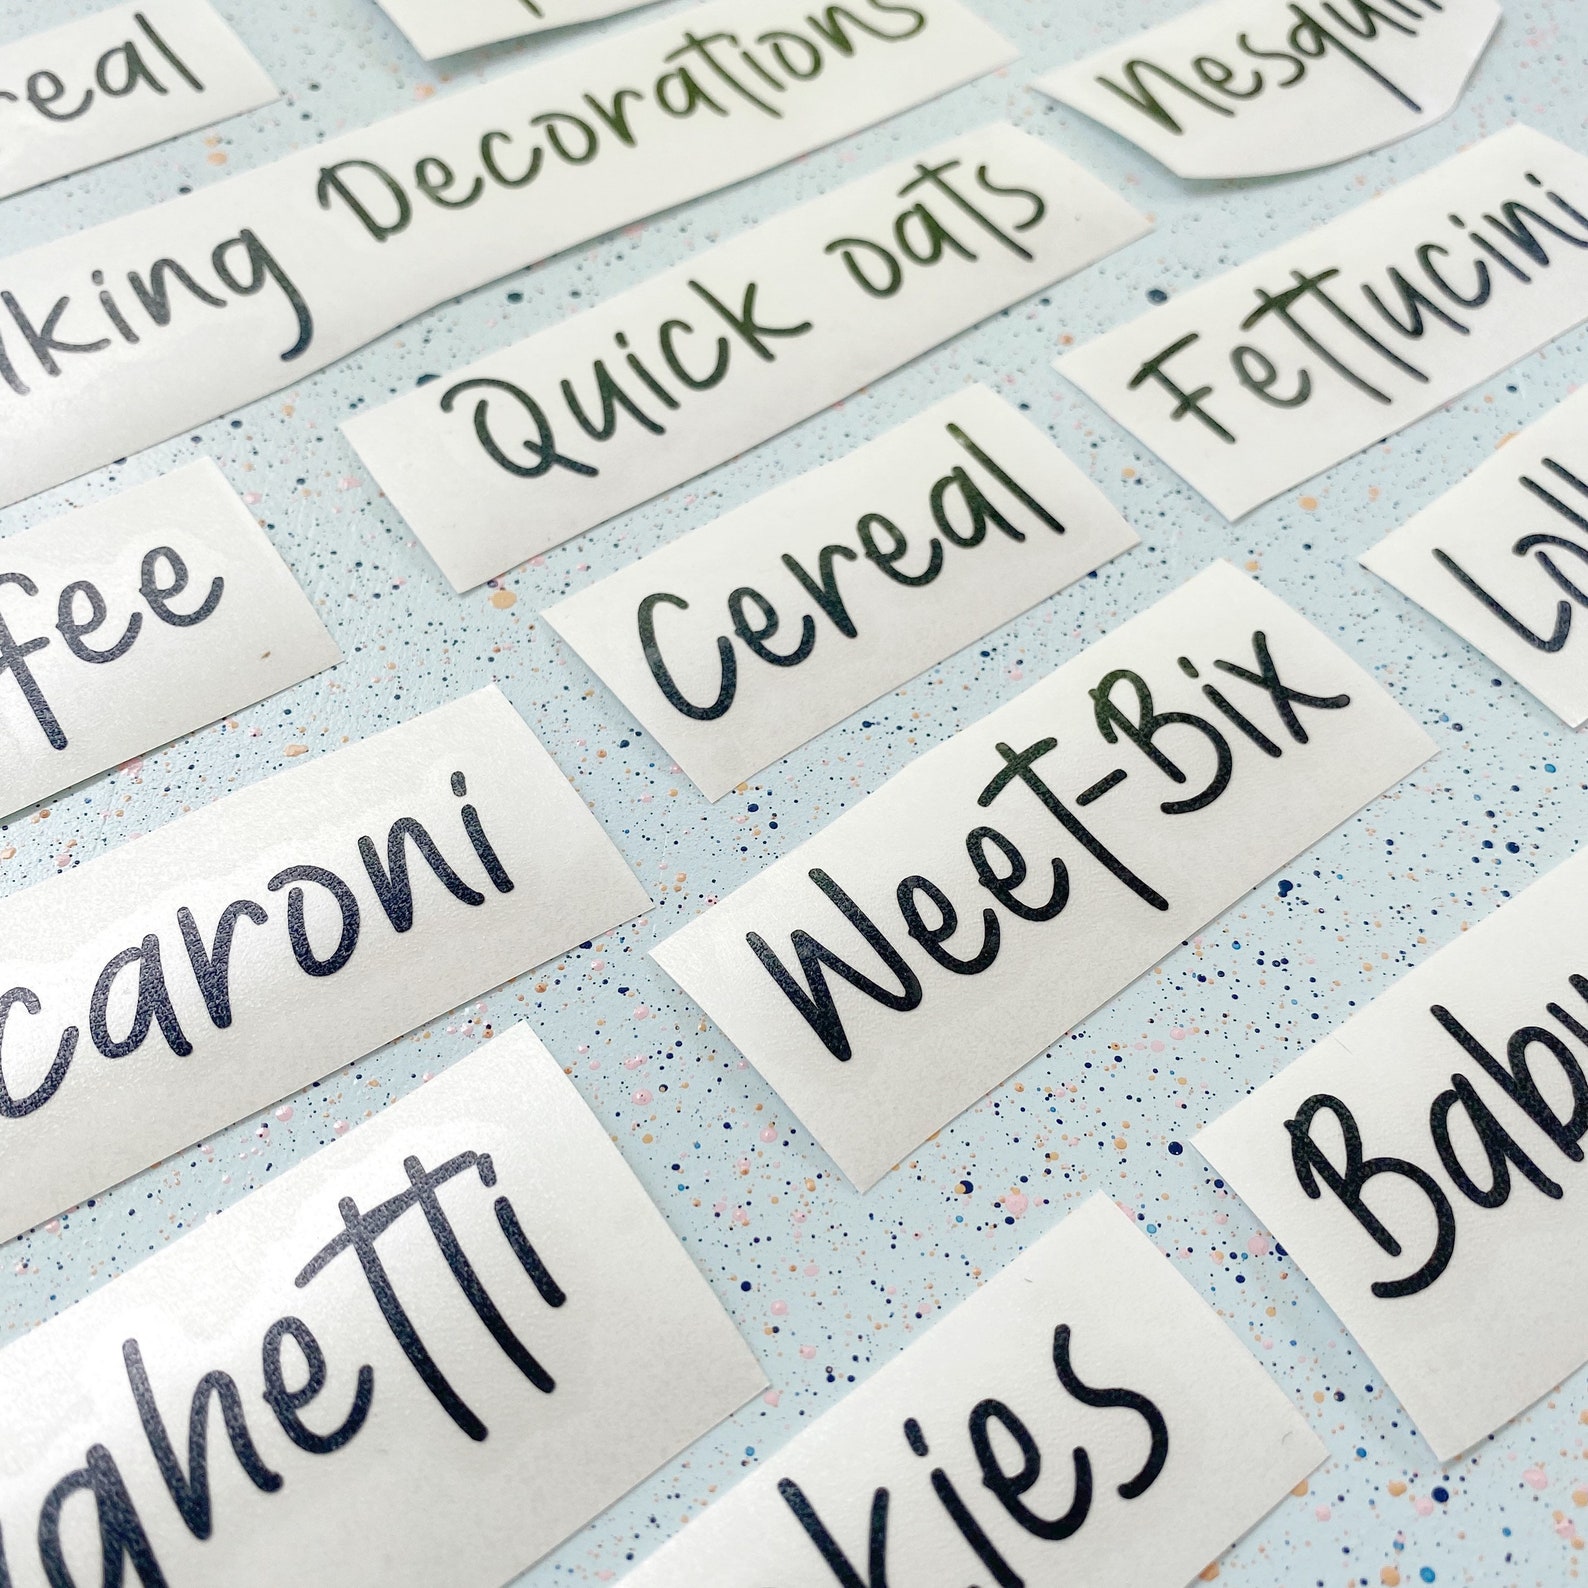 real
king Decorations
Nesqui
Quick oats
Fettucini
fee
Cereal
Loll
caroni
Weet-Bix
Baby
ghetti
kies